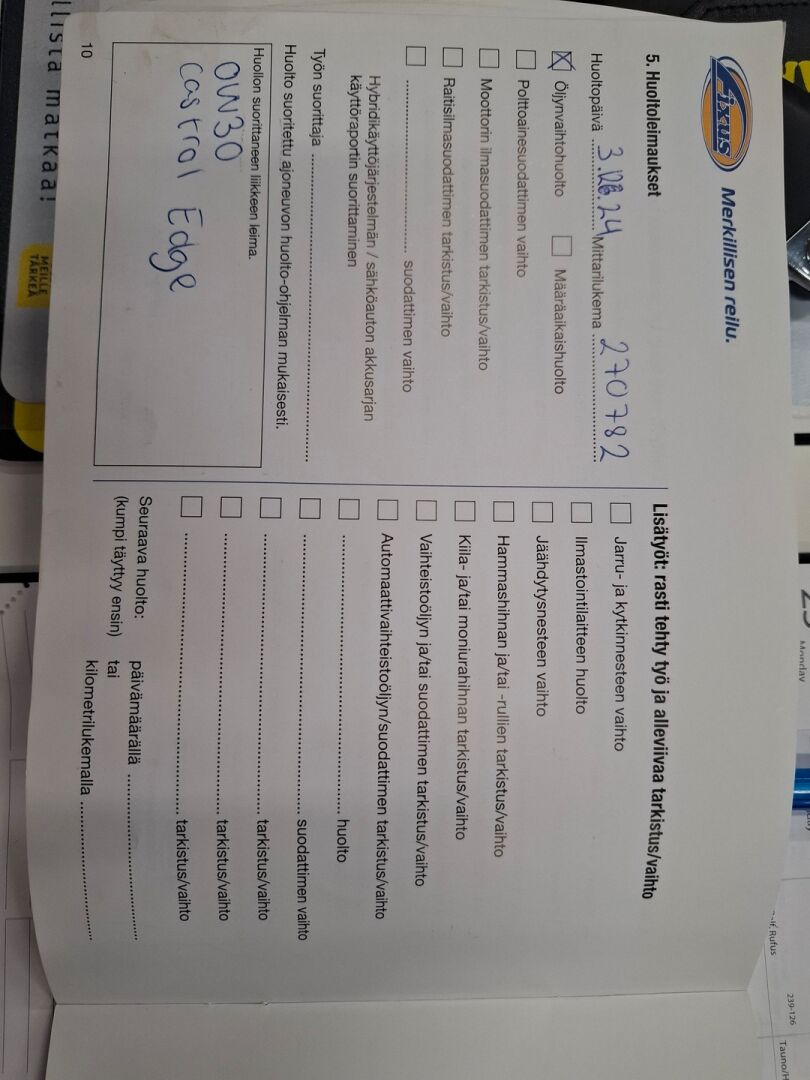 Fixus
Merkillisen reilu.
5. Huoltoleimaukset
Huoltopäivä 3. .24 Mittarilukema 270782
Öljynvaihtohuolto Määräaikaishuolto
Polttoainesuodattimen vaihto
Moottorin ilmasuodattimen tarkistus/vaihto
Raitisilmasuodattimen tarkistus/vaihto
suodattimen vaihto
Hybridikäyttöjärjestelmän / sähköauton akkusarjan
käyttöraportin suorittaminen
Työn suorittaja
Huolto suoritettu ajoneuvon huolto-ohjelman mukaisesti.
Huollon suorittaneen liikkeen leima.
0W30
Castrol Edge
10
Lisätyöt: rasti tehty työ ja alleviivaa tarkistus/vaihto
Jarru- ja kytkinnesteen vaihto
Ilmastointilaitteen huolto
Jäähdytysnesteen vaihto
Hammashihnan ja/tai -rullien tarkistus/vaihto
Kiila- ja/tai moniurahihnan tarkistus/vaihto
Vaihteistoöljyn ja/tai suodattimen tarkistus/vaihto
Automaattivaihteistoöljyn/suodattimen tarkistus/vaihto
huolto
suodattimen vaihto
tarkistus/vaihto
tarkistus/vaihto
tarkistus/vaihto
Seuraava huolto: päivämäärällä
(kumpi täyttyy ensin) tai
kilometrilukemalla
matkaa!
MEILLE
TÄRKEÄ
Monday
Rufus
239-126